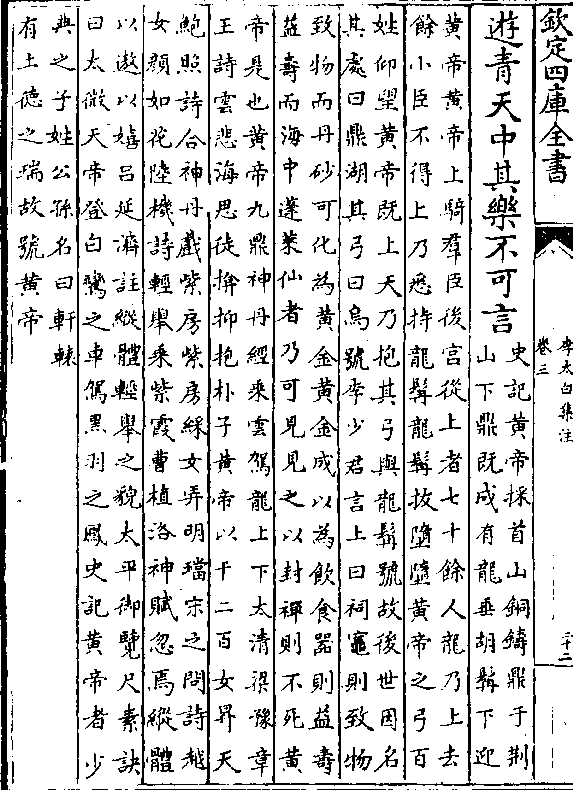 欽定四庫全書
李太白集注
卷三
二十二
遊青天中其樂不可言
史記黃帝採首山銅鑄鼎于荆
山下鼎既成有龍垂胡髯下迎
黃帝黃帝上騎羣臣後宮從上者七十餘人龍乃上去
餘小臣不得上乃悉持龍髯龍髯拔墮墮黃帝之弓百
姓仰望黃帝既上天乃抱其弓與龍髯號故後世因名
其處曰鼎湖其弓曰烏號李少君言上曰祠竈則致物
致物而丹砂可化為黃金黃金成以為飲食器則益壽
益壽而海中蓬萊仙者乃可見見之以封禪則不死黃
帝是也黃帝九鼎神丹經乘雲駕龍上下太清梁豫章
王詩雲悲海思徒揜抑抱朴子黃帝以千二百女昇天
鮑照詩合神丹戲紫房紫房綵女弄明璫宋之問詩越
女顔如花陸機詩輕舉乘紫霞曹植洛神賦忽焉縱體
以遨以嬉呂延濟註縱體輕舉之貌太平御覽尺素訣
曰太微天帝登白鸞之車駕黑羽之鳳史記黃帝者少
典之子姓公孫名曰軒轅
有土德之瑞故號黃帝